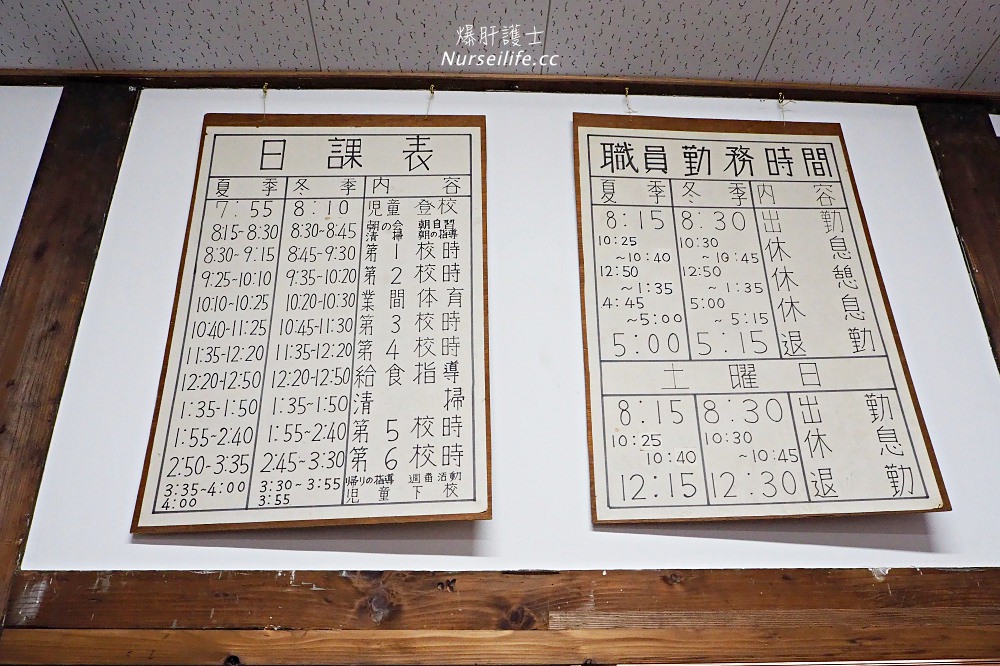 爆肝護士
Nurseilife.cc
日課表
夏季 冬季 内容
7:55 8:10 児童登校
8:15~8:30 8:30~8:45 朝の会 朝自習
清掃 朝の指導
8:30~9:15 8:45~9:30 第1校時
9:25~10:10 9:35~10:20 第2校時
10:10~10:25 10:20~10:30 業間体育
10:40~11:25 10:45~11:30 第3校時
11:35~12:20 11:35~12:20 第4校時
12:20~12:50 12:20~12:50 給食指導
1:35~1:50 1:35~1:50 清掃
1:55~2:40 1:55~2:40 第5校時
2:50~3:35 2:45~3:30 第6校時
3:35~4:00 3:30~3:55 帰りの指導 週番活動
4:00 3:55 児童下校
職員勤務時間
夏季 冬季 内容
8:15 8:30 出勤
10:25 10:30 休息
~10:40 ~10:45
12:50 12:50 休憩
~1:35 ~1:35
4:45 5:00 休息
~5:00 ~5:15
5:00 5:15 退勤
土曜日
8:15 8:30 出勤
10:25 10:30 休息
10:40 ~10:45
12:15 12:30 退勤